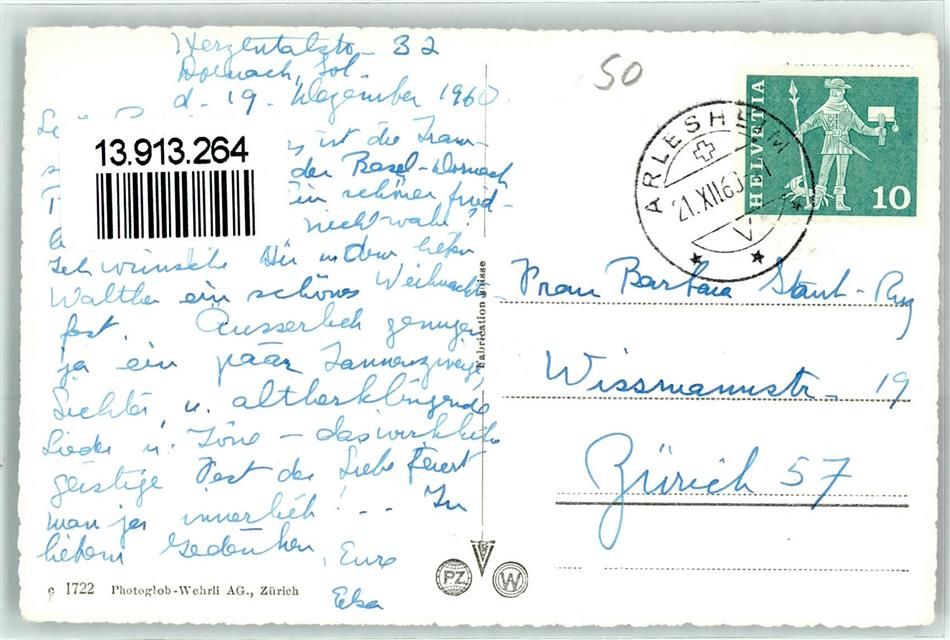 Herzentalstr. 32
Dornach, Sol.
d. 19. Dezember 1960.
ist die Tram-
der Basel-Dornach
ein schöner fried-
nicht wahr?
Ich wünsche Dir u. dem lieben
Walther ein schönes Weihnachts-
fest. Äusserlich genügen
ja ein paar Tannenzweige
Lichter u. altherklingende
Lieder u. Töne – das wirklich
geistige Fest der Liebe feiert
man ja innerlich! ... In
liebem Gedenken, Eure
Elsa
13.913.264
50
ARLESHEIM
21.XII.60
V
HELVETIA
10
Frau Barbara Staub-Rug
Wissmannstr. 19
Zürich 57
Fabrication Suisse
PZ
W
c 1722 Photoglob-Wehrli AG., Zürich